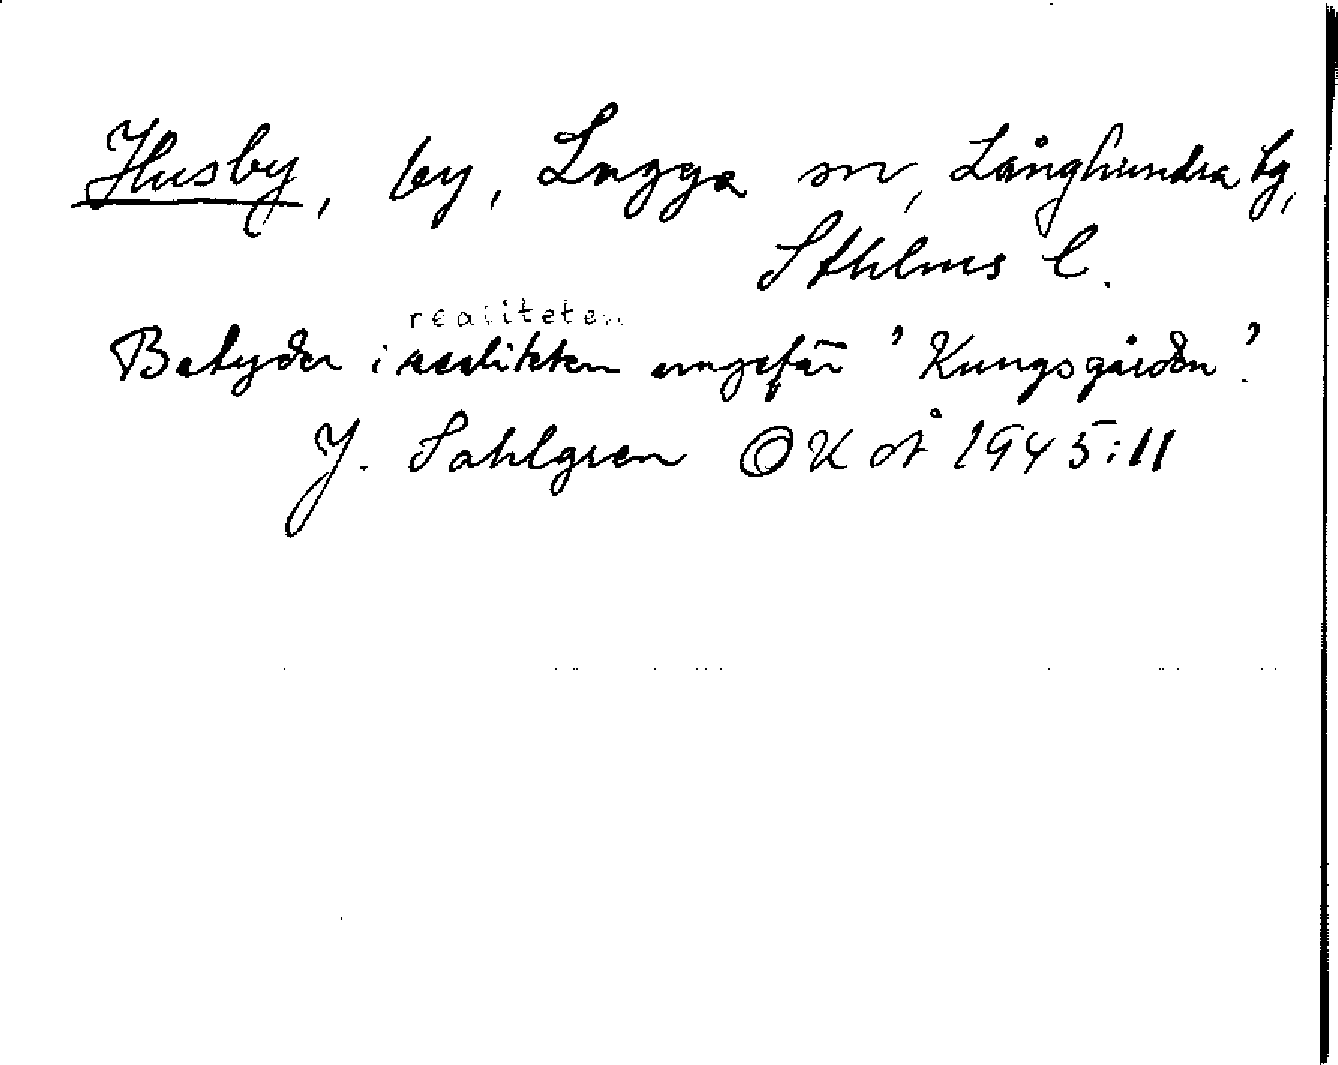 Husby, by, Lagga sn, Långhundra tg,
Sthlms l.
realiteten
Betyder i realiteten ungefär 'Kungsgården'.
J. Sahlgren OK då 1945:11